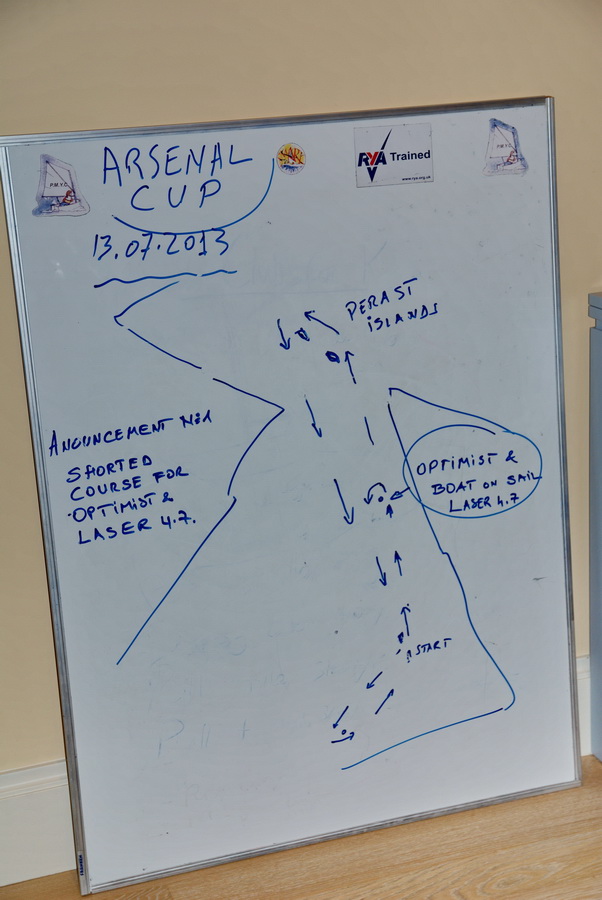 ARSENAL
CUP
13.07.2013
P.M.Y.C.
RYA Trained
www.rya.org.uk
P.M.Y.C.
PERAST
ISLANDS
ANOUNCEMENT No1
SHORTED
COURSE FOR
OPTIMIST &
LASER 4.7.
OPTIMIST &
BOAT ON SAIL
LASER 4.7
START